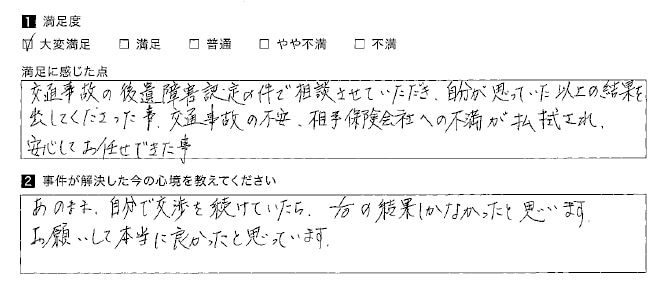 1 満足度
☑ 大変満足 □ 満足 □ 普通 □ やや不満 □ 不満
満足に感じた点
交通事故の後遺障害認定の件で相談させていただき、自分が思っていた以上の結果を
出してくださった事、交通事故の不安、相手保険会社への不満が払拭され、
安心してお任せできた事
2 事件が解決した今の心境を教えてください
あのまま、自分で交渉を続けていたら、1/10の結果しかなかったと思います。
お願いして本当に良かったと思っています。